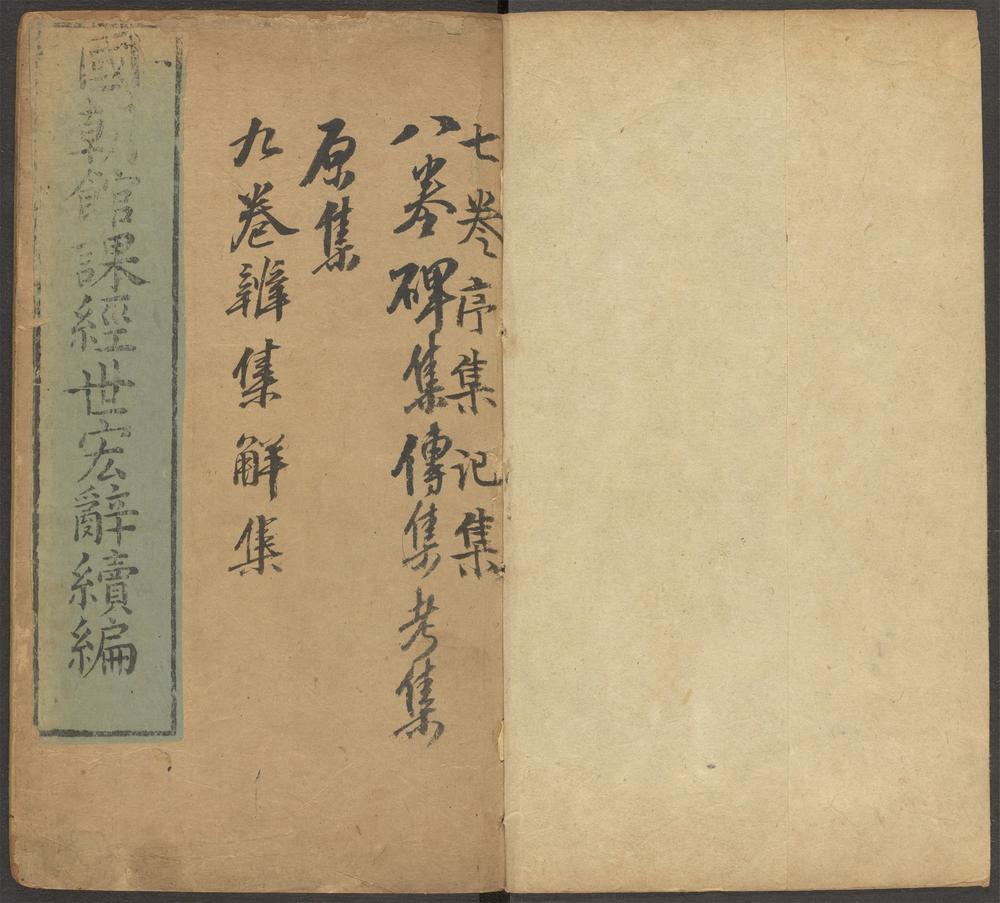 七卷序集記集
八卷碑集傳集考集
原集
九卷辨集解集
國朝館課經世宏辭續編